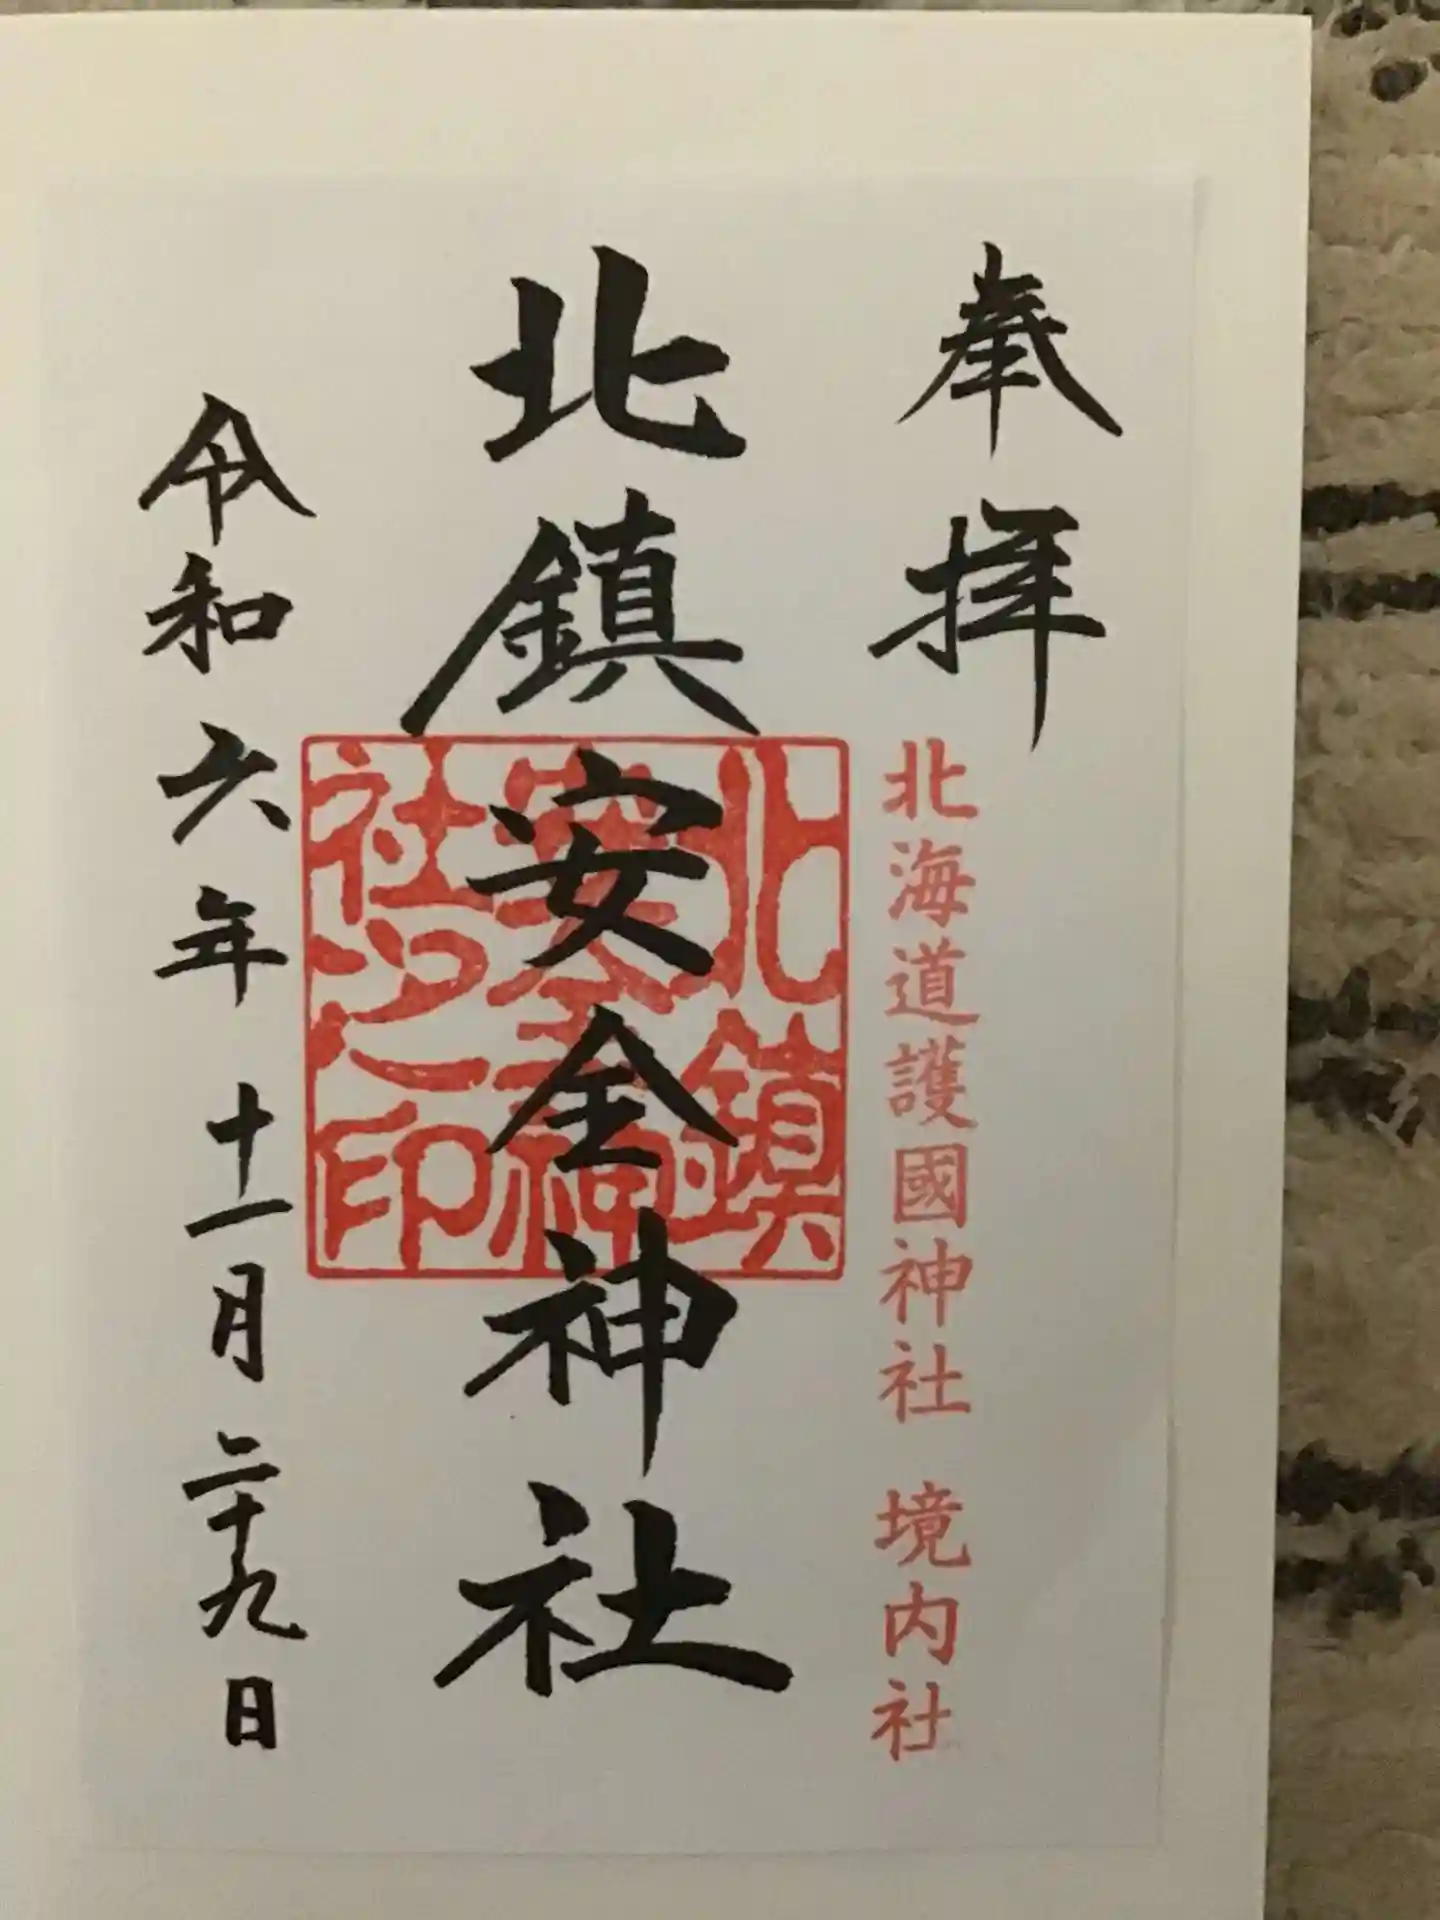 奉拝
北海道護國神社 境内社
北鎮安全神社
北鎮安全神社之印
令和六年十一月二十九日